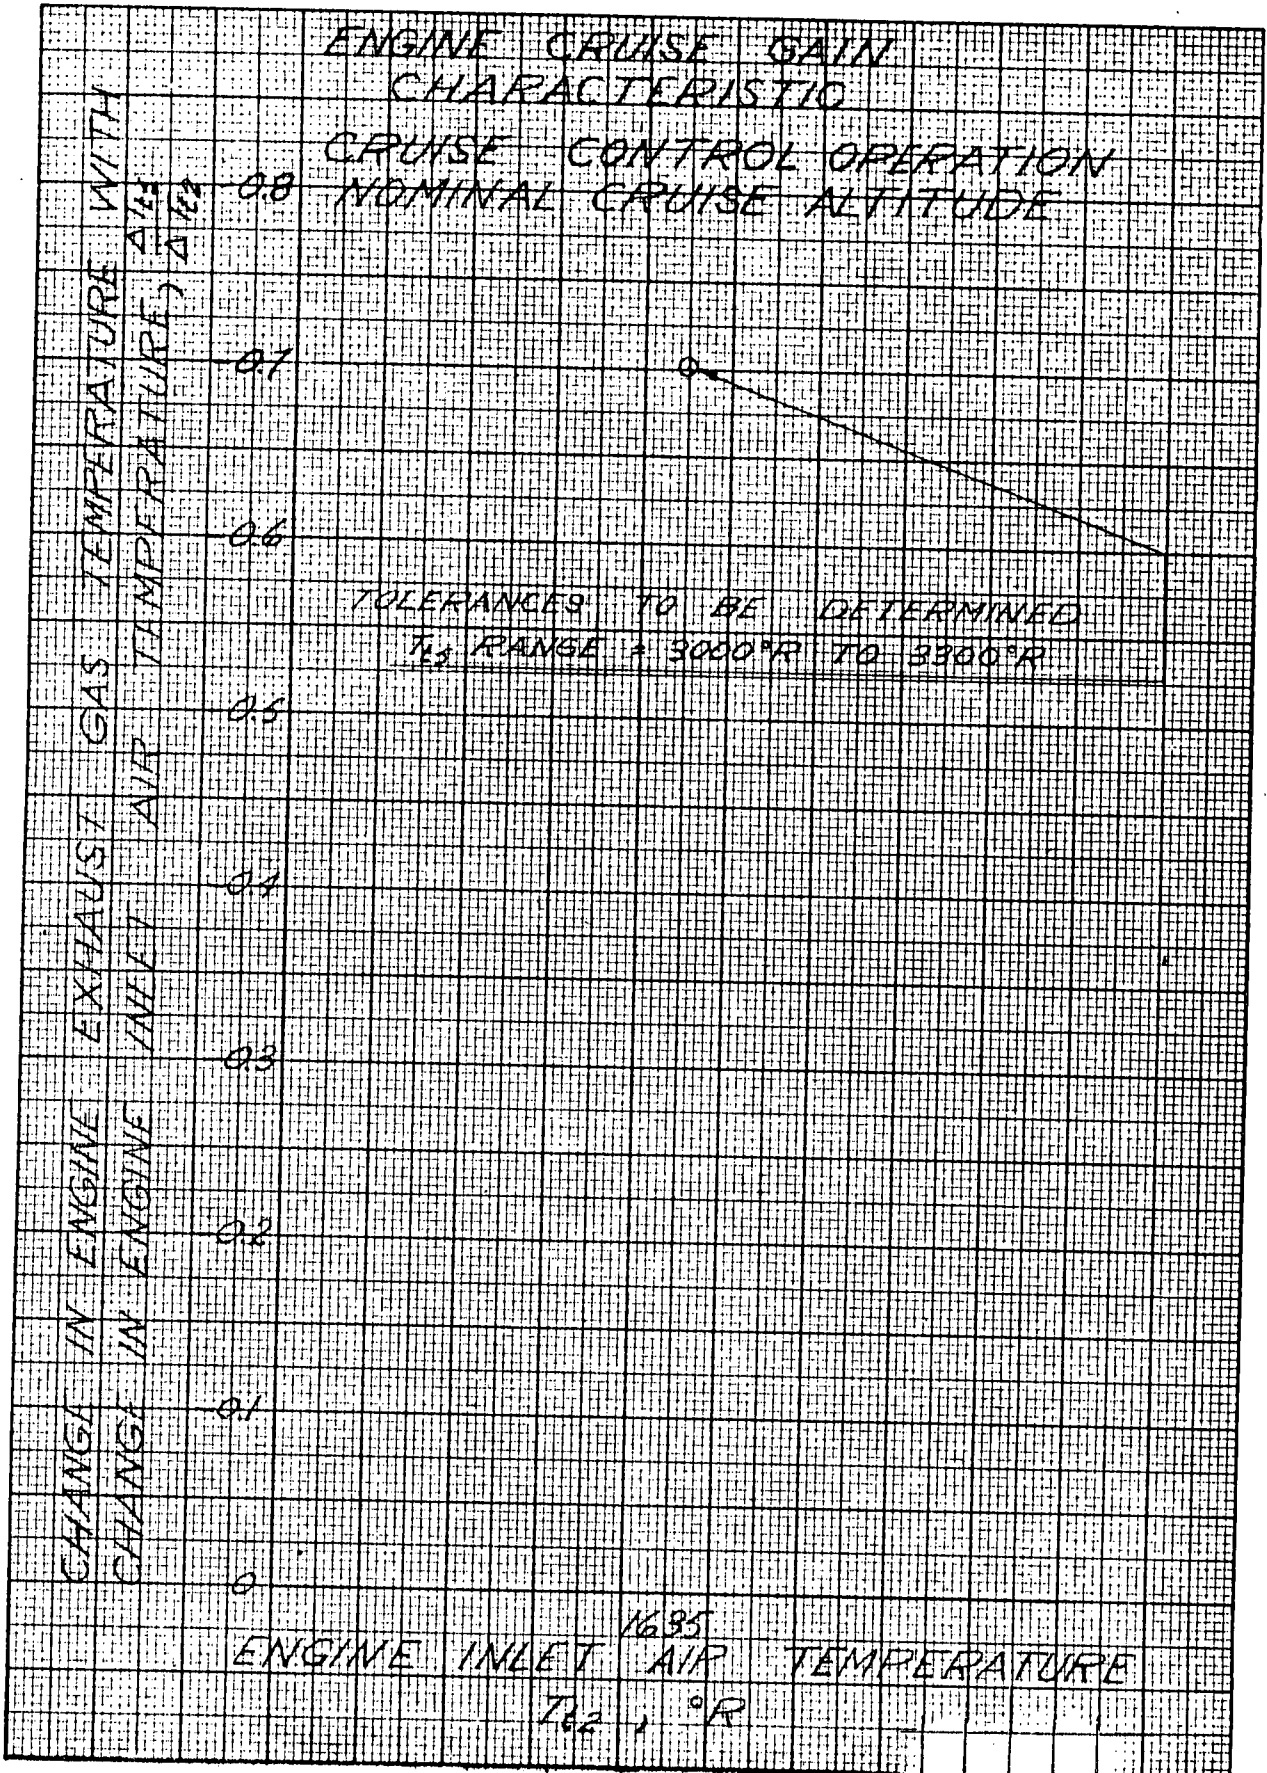 ENGINE CRUISE GAIN
CHARACTERISTIC
CRUISE CONTROL OPERATION
NOMINAL CRUISE ALTITUDE
CHANGE IN ENGINE EXHAUST GAS TEMPERATURE WITH
CHANGE IN ENGINE INLET AIR TAMPERATURE,
0.8
0.7
0.6
TOLERANCES TO BE DETERMINED
RANGE = 3000°R TO 3300°R
0.5
0.4
0.3
0.2
0.1
0
1635
ENGINE INLET AIR TEMPERATURE
Tt2 , °R